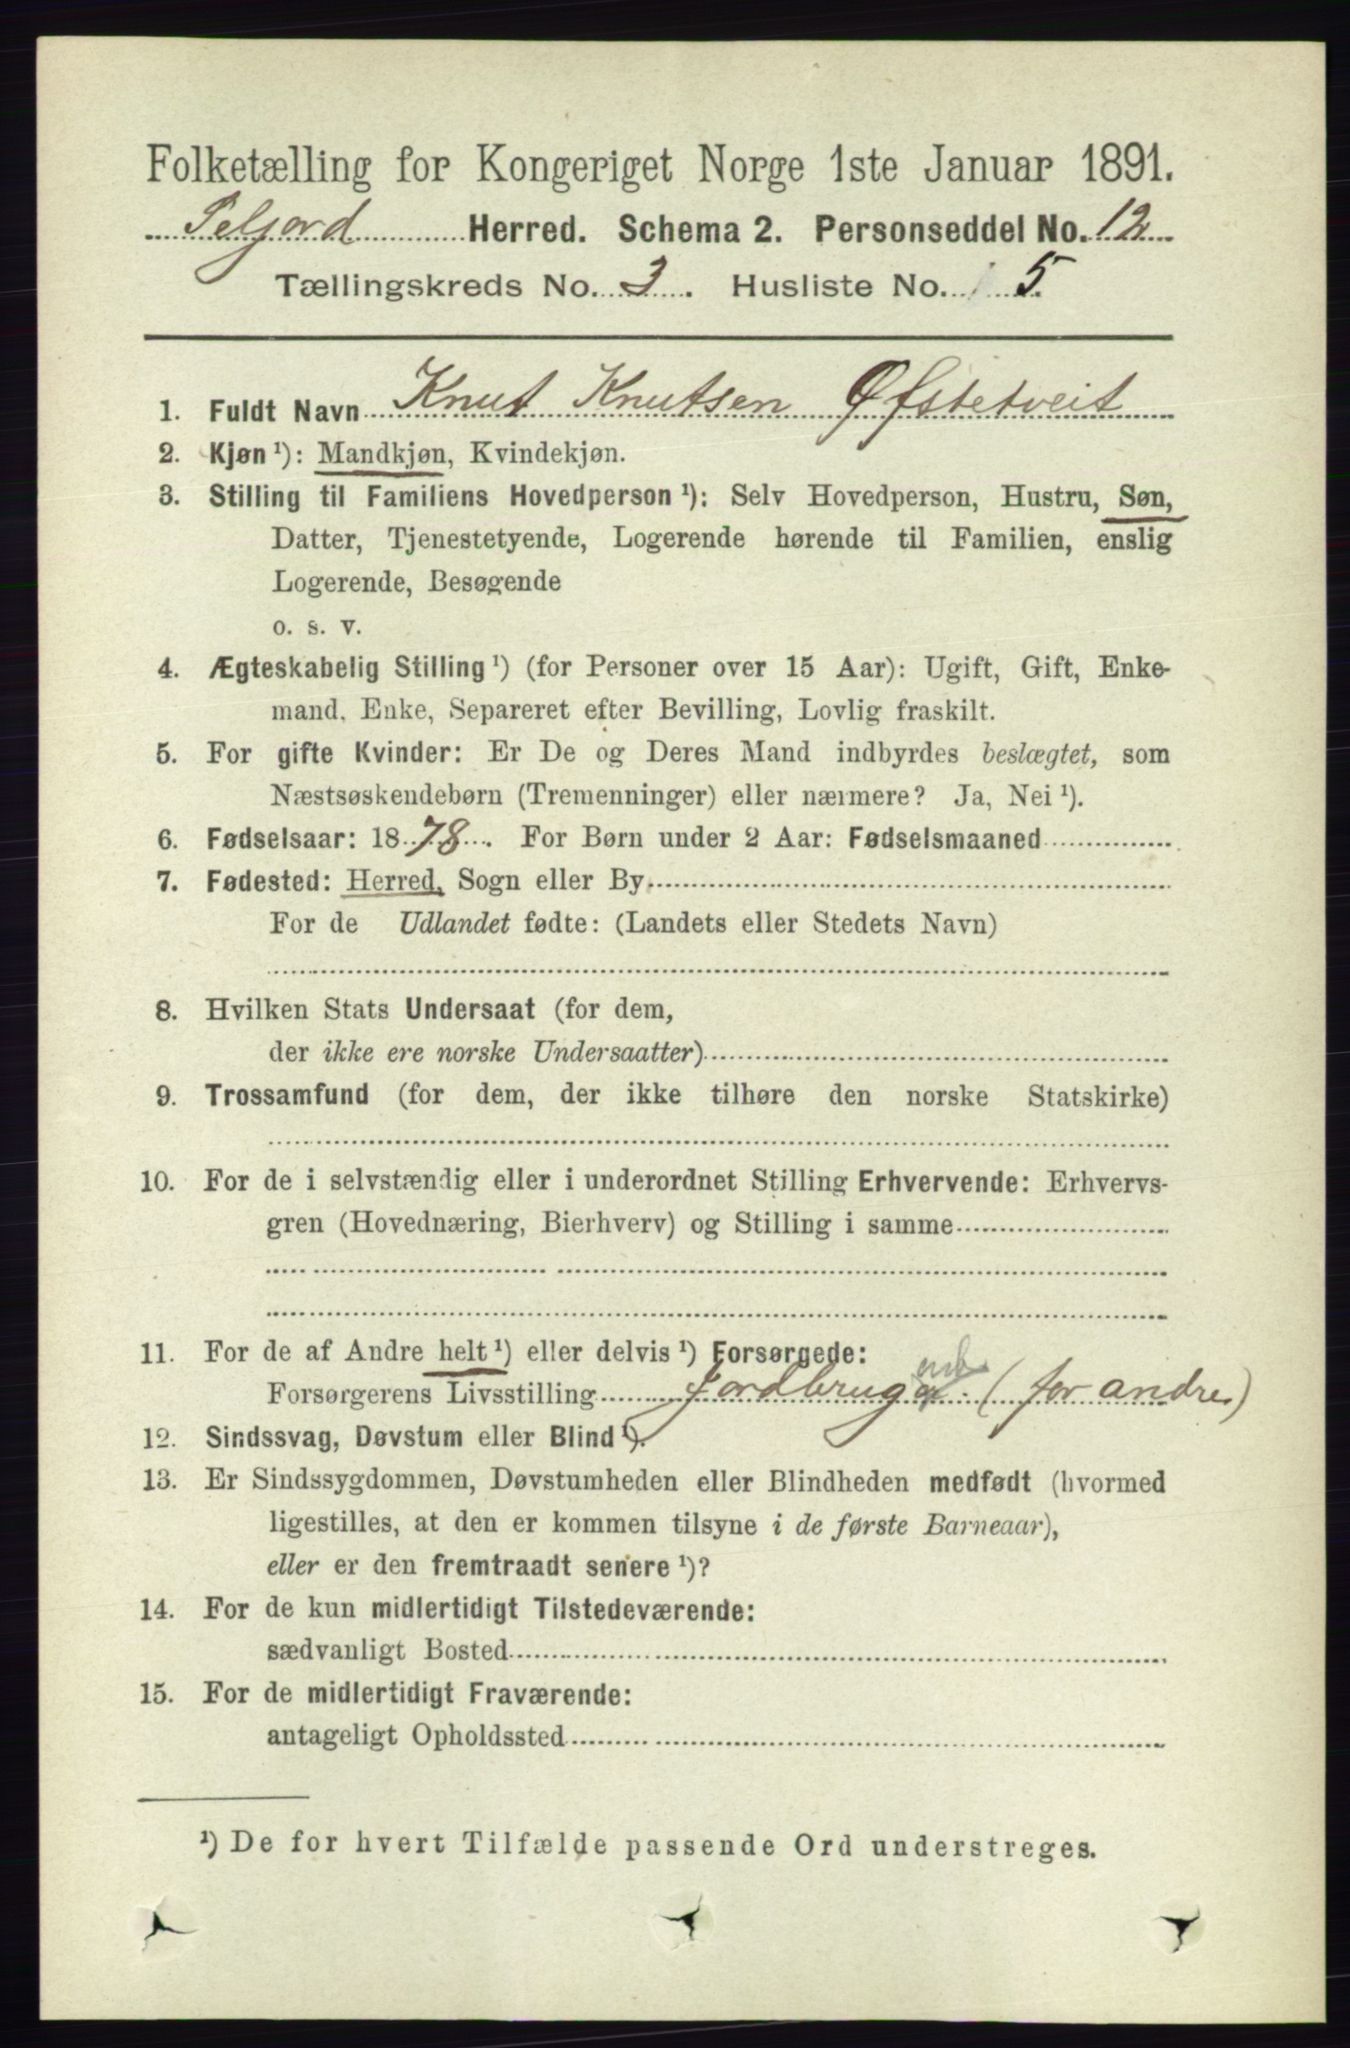 Folketælling for Kongeriget Norge 1ste Januar 1891.
Seljord Herred. Schema 2. Personseddel No. 12
Tællingskreds No. 3. Husliste No. 5.
1. Fuldt Navn Knut Knutsen Øfstetveit
2. Kjøn¹): Mandkjøn, Kvindekjøn.
3. Stilling til Familiens Hovedperson¹): Selv Hovedperson, Hustru, Søn,
Datter, Tjenestetyende, Logerende hørende til Familien, enslig
Logerende, Besøgende
o. s. v.
4. Ægteskabelig Stilling¹) (for Personer over 15 Aar): Ugift, Gift, Enke-
mand, Enke, Separeret efter Bevilling, Lovlig fraskilt.
5. For gifte Kvinder: Er De og Deres Mand indbyrdes beslægtet, som
Næstsøskendebørn (Tremenninger) eller nærmere? Ja, Nei¹).
6. Fødselsaar: 1878. For Børn under 2 Aar: Fødselsmaaned
7. Fødested: Herred, Sogn eller By
For de Udlandet fødte: (Landets eller Stedets Navn)
8. Hvilken Stats Undersaat (for dem,
der ikke ere norske Undersaatter)
9. Trossamfund (for dem, der ikke tilhøre den norske Statskirke)
10. For de i selvstændig eller i underordnet Stilling Erhvervende: Erhvervs-
gren (Hovednæring, Bierhverv) og Stilling i samme
11. For de af Andre helt¹) eller delvis¹) Forsørgede:
Forsørgerens Livsstilling Jordbrug (for andre)
12. Sindssvag, Døvstum eller Blind¹).
13. Er Sindssygdommen, Døvstumheden eller Blindheden medfødt (hvormed
ligestilles, at den er kommen tilsyne i de første Barneaar),
eller er den fremtraadt senere¹)?
14. For de kun midlertidigt Tilstedeværende:
sædvanligt Bosted
15. For de midlertidigt Fraværende:
antageligt Opholdssted
¹) De for hvert Tilfælde passende Ord understreges.